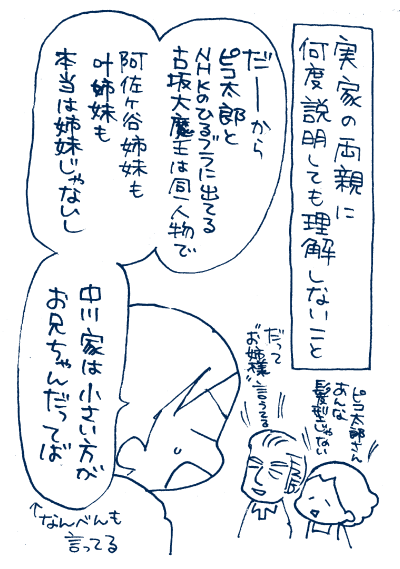 実家の両親に
何度説明しても理解しないこと
だーから
ピコ太郎と
NHKのひるブラに出てる
古坂大魔王は同一人物で
阿佐ヶ谷姉妹も
叶姉妹も
本当は姉妹じゃないし
中川家は小さい方が
お兄ちゃんだってば
ピコ太郎さん
あんな
髪型じゃない
だって
“お姉様”
言うてる
↑なんべんも
言ってる